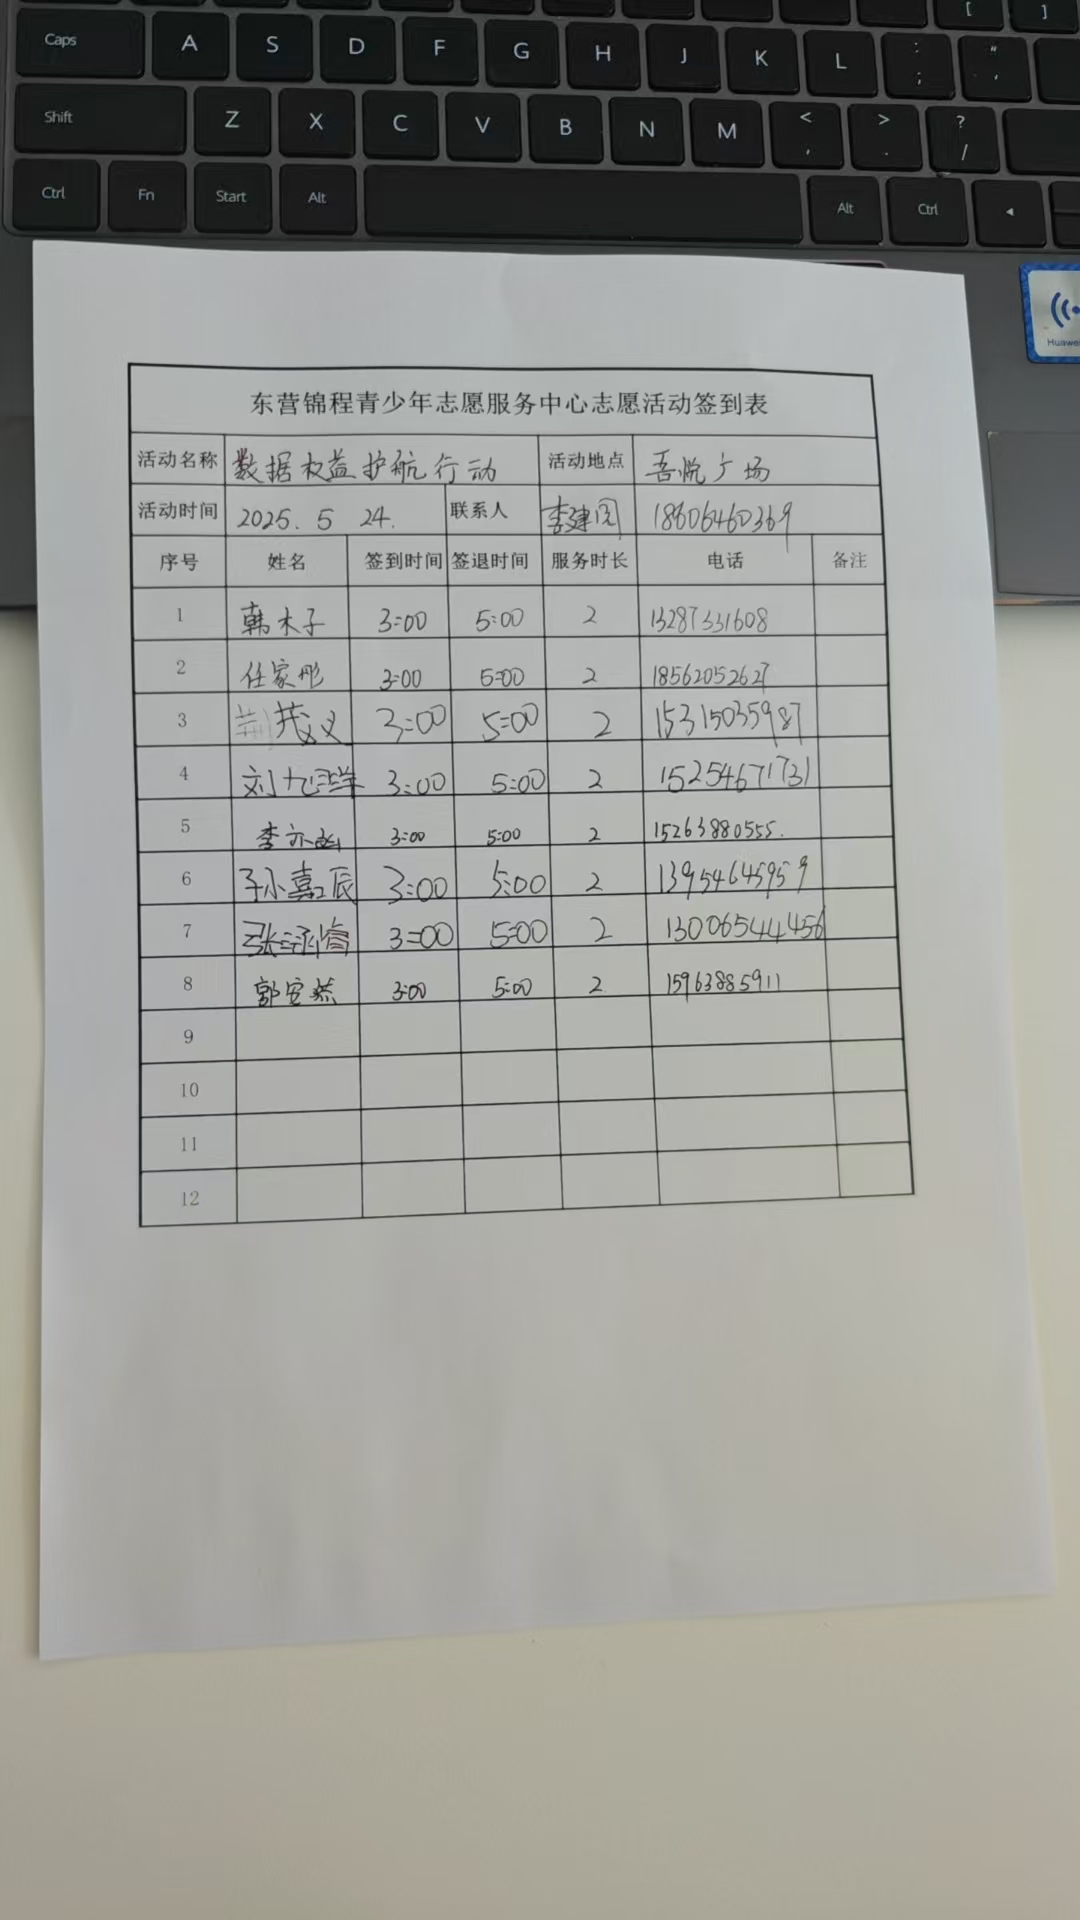 [ ]
Caps A S D F G H J K L : ; " '
Shift Z X C V B N M < , > . ? /
Ctrl Fn Start Alt Alt Ctrl ◂
Huawei
东营锦程青少年志愿服务中心志愿活动签到表
活动名称 数据权益护航行动 活动地点 吾悦广场
活动时间 2025. 5 24. 联系人 李建国 18606460369
序号 姓名 签到时间 签退时间 服务时长 电话 备注
1 韩木子 3:00 5:00 2 13287331608
2 任家彤 3:00 5:00 2 18562052627
3 荆茂义 3:00 5:00 2 15315035987
4 刘 3:00 5:00 2 15254671731
5 李亦 3:00 5:00 2 15263880555.
6 孙嘉辰 3:00 5:00 2 13954645959
7 张涵睿 3:00 5:00 2 13006544456
8 郭安然 3:00 5:00 2 15963885911
9
10
11
12